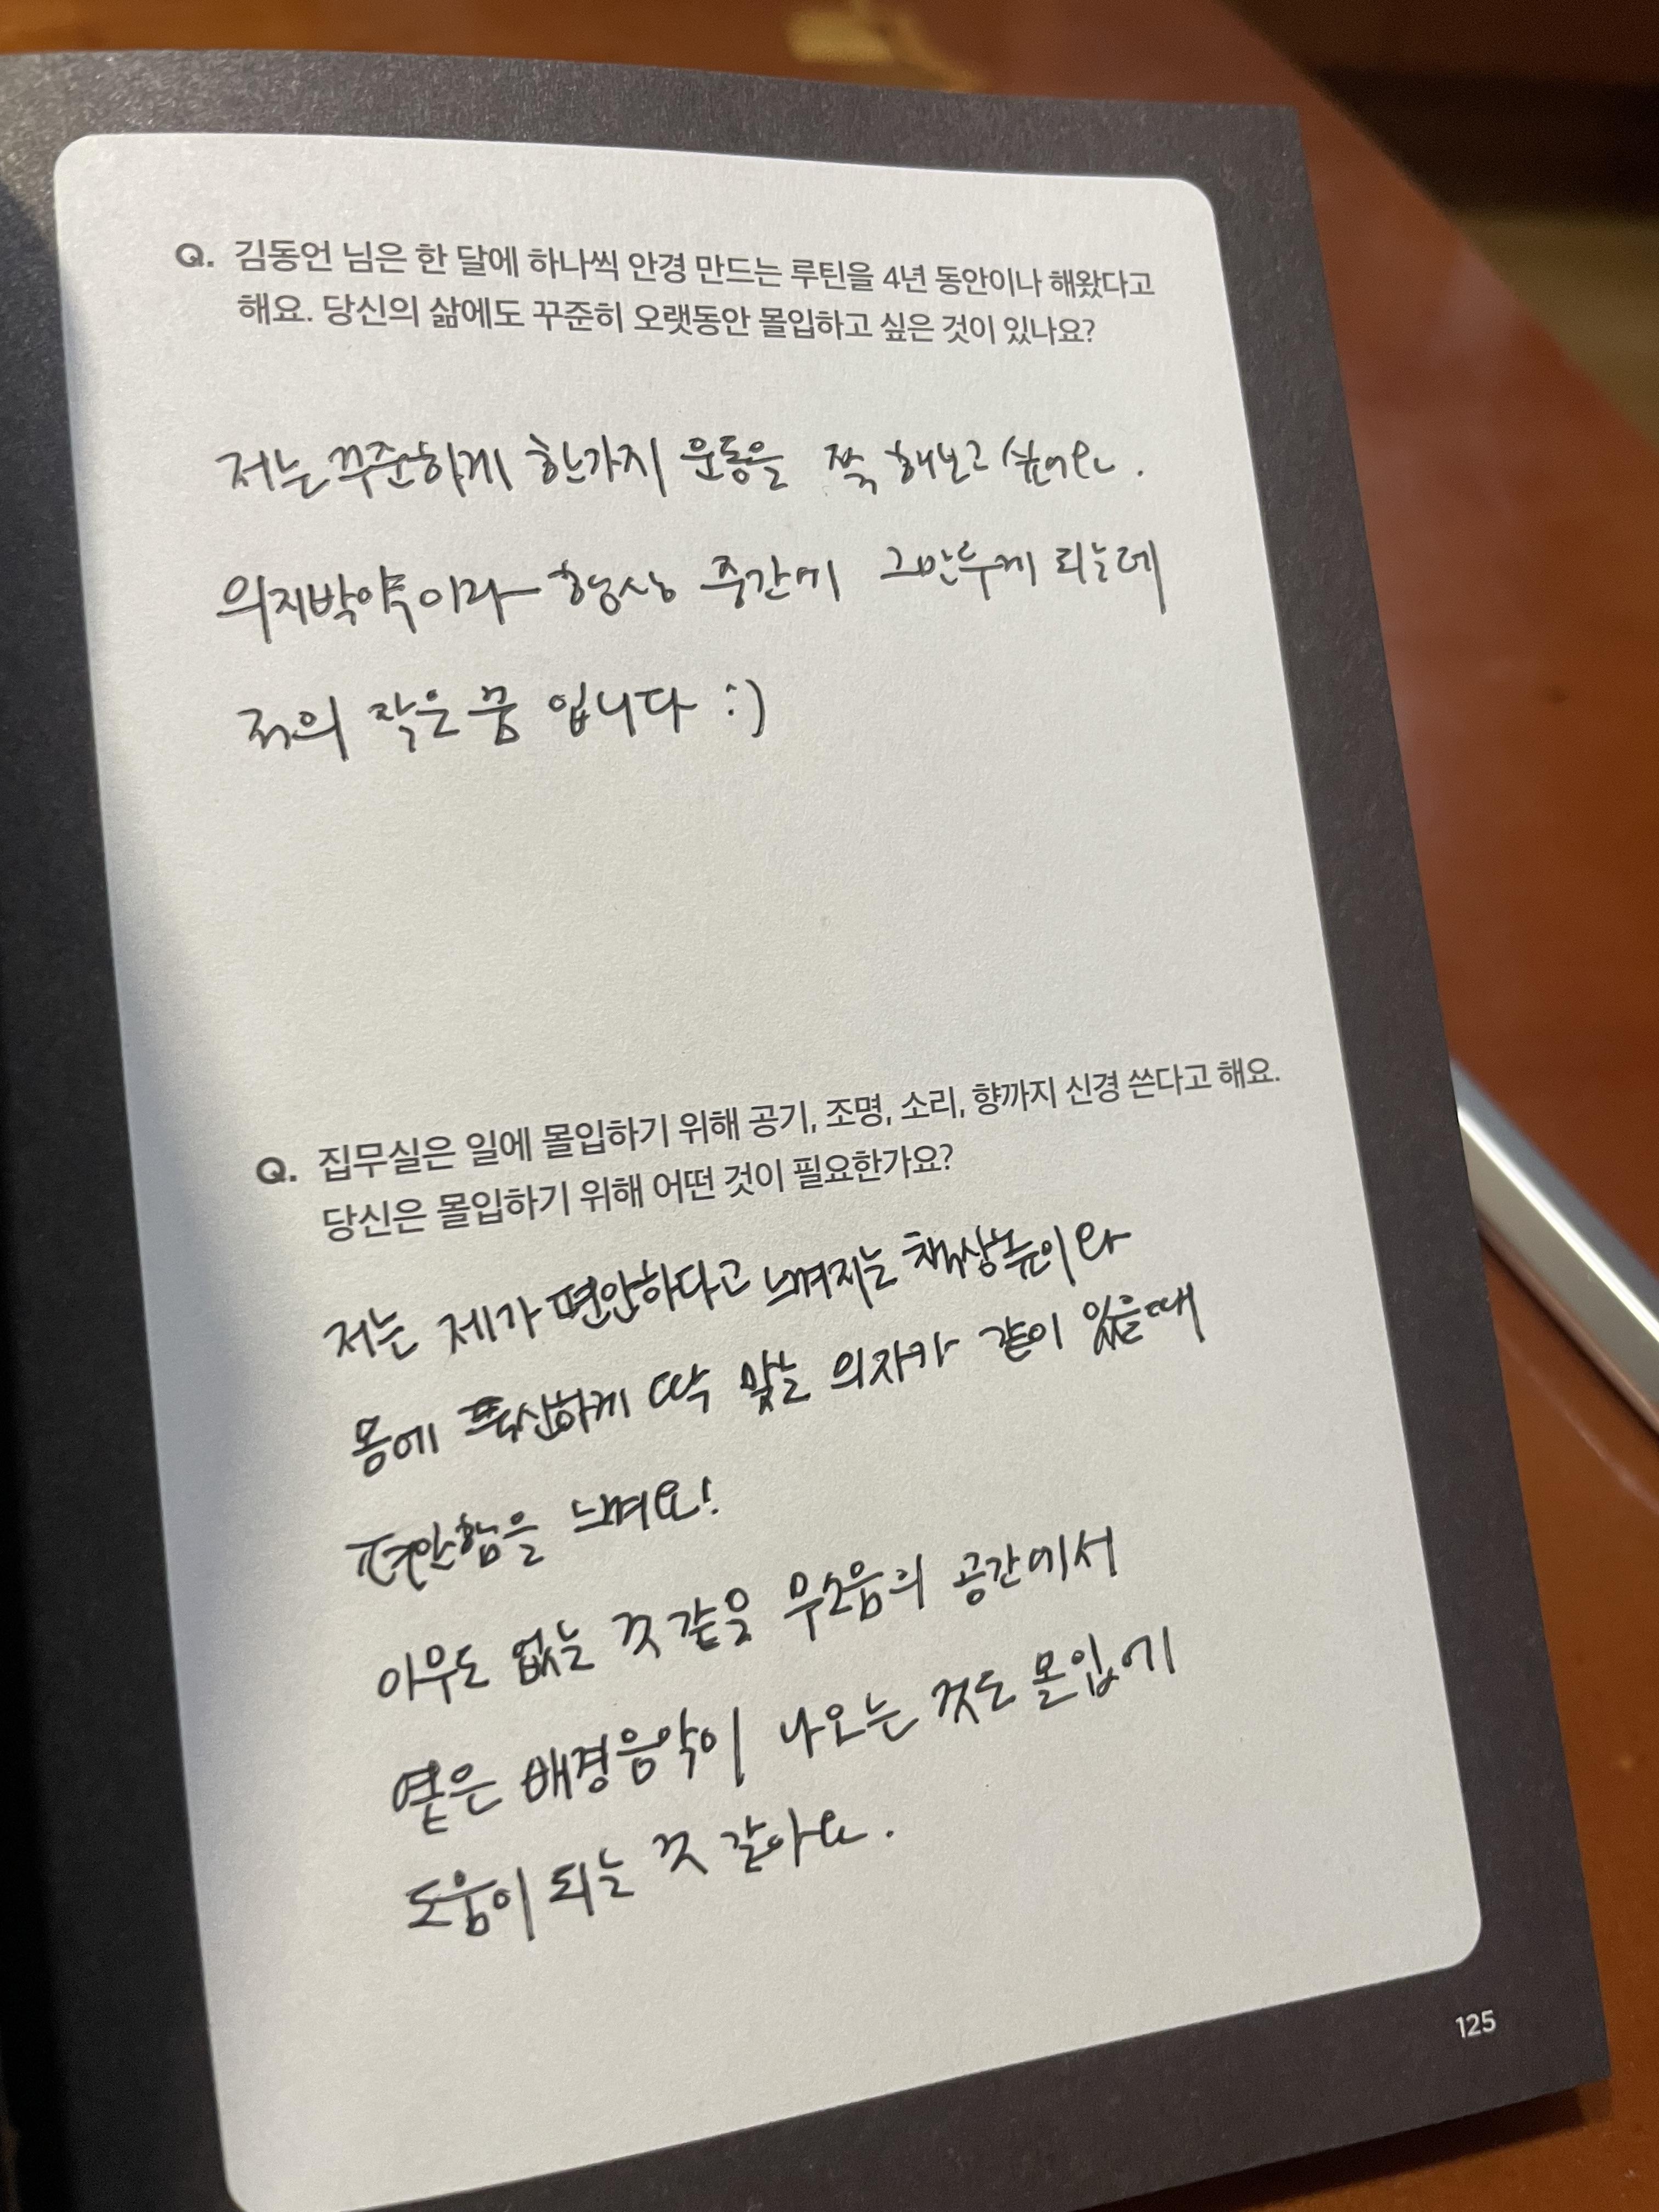 Q. 김동언 님은 한 달에 하나씩 안경 만드는 루틴을 4년 동안이나 해왔다고
해요. 당신의 삶에도 꾸준히 오랫동안 몰입하고 싶은 것이 있나요?
저는 꾸준하게 한가지 운동을 쭉 해보고 싶어요.
의지박약이라 항상 중간에 그만두게 되는데
저의 작은 꿈 입니다 :)
Q. 집무실은 일에 몰입하기 위해 공기, 조명, 소리, 향까지 신경 쓴다고 해요.
당신은 몰입하기 위해 어떤 것이 필요한가요?
저는 제가 편안하다고 느껴지는 책상높이와
몸에 푹신하게 딱 맞는 의자가 같이 있을때
편안함을 느껴요!
아무도 없는 것 같은 무소음의 공간에서
옅은 배경음악이 나오는 것도 몰입에
도움이 되는 것 같아요.
125